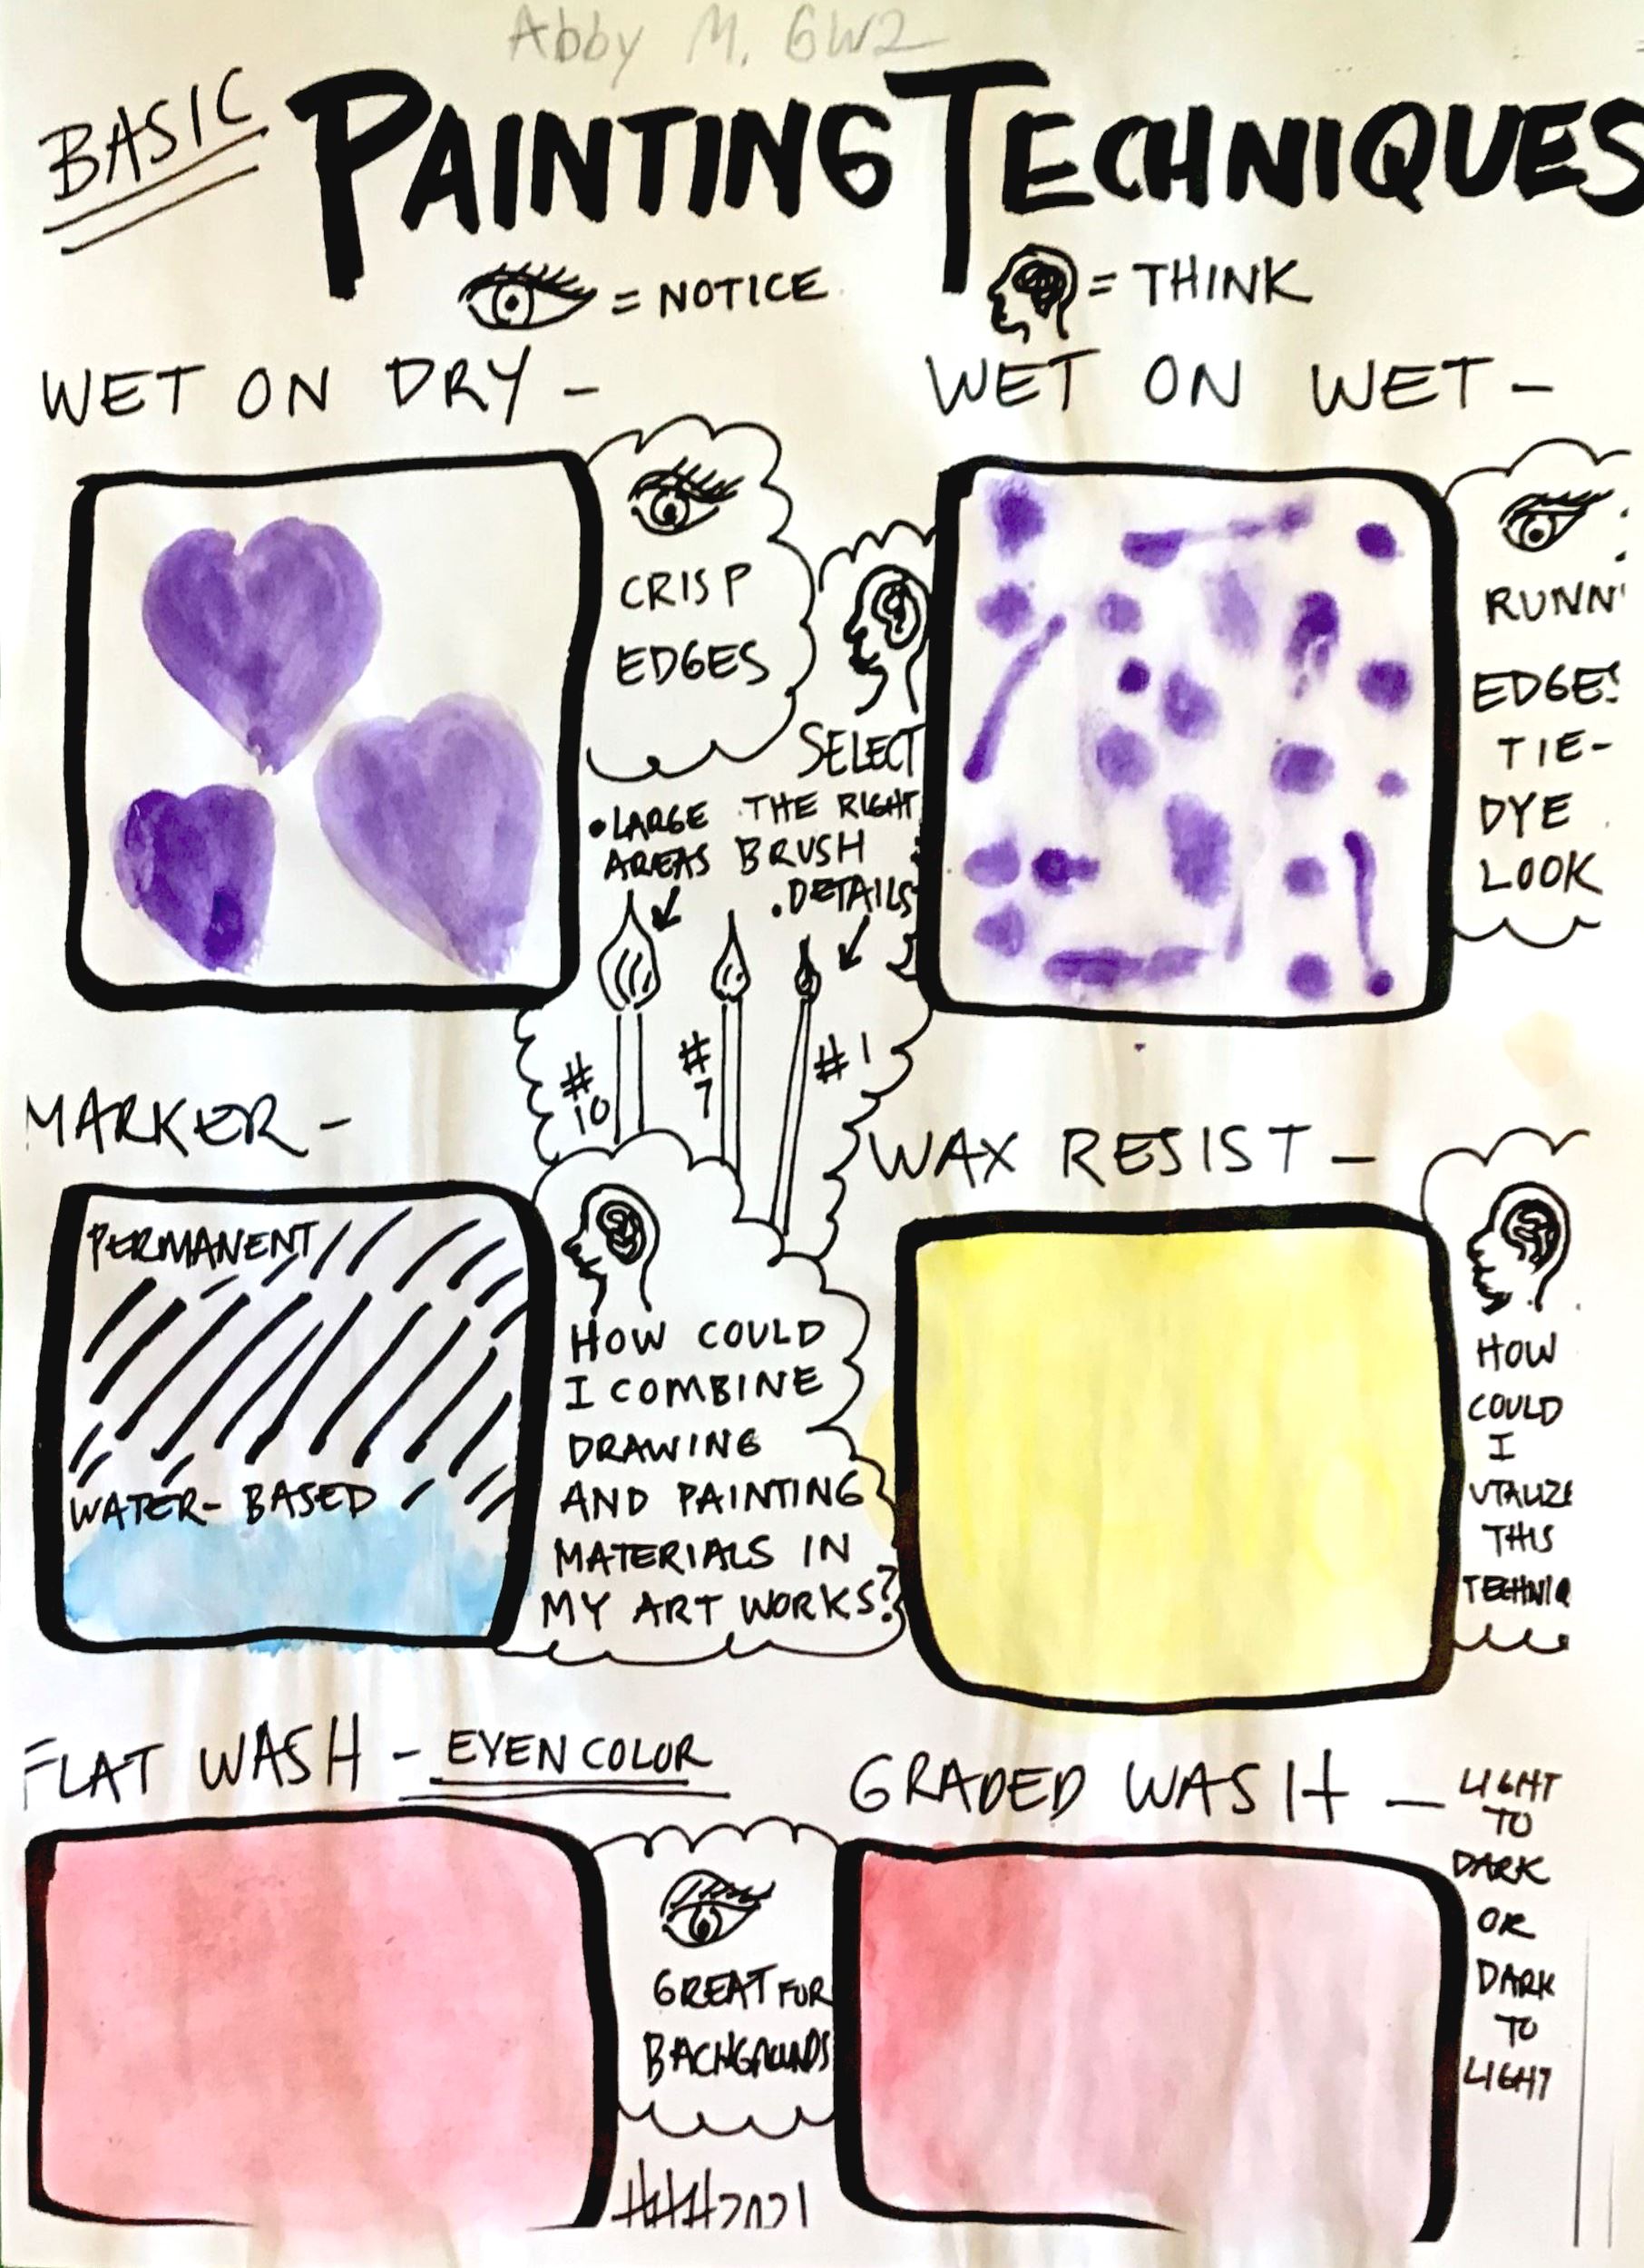 Abby M. 6W2
BASIC PAINTING TECHNIQUES
= NOTICE
= THINK
WET ON DRY -
CRISP
EDGES
WET ON WET -
RUNN
EDGES
TIE-
DYE
LOOK
SELECT
THE RIGHT
BRUSH
• LARGE
AREAS
. DETAILS
#10
#7
#1
MARKER -
PERMANENT
WATER-BASED
HOW COULD
I COMBINE
DRAWING
AND PAINTING
MATERIALS IN
MY ART WORKS?
WAX RESIST -
HOW
COULD
I
UTALIZE
THIS
TECHNIQ
FLAT WASH - EVEN COLOR
GREAT FOR
BACHGROUNDS
GRADED WASH -
LIGHT
TO
DARK
OR
DARK
TO
LIGHT